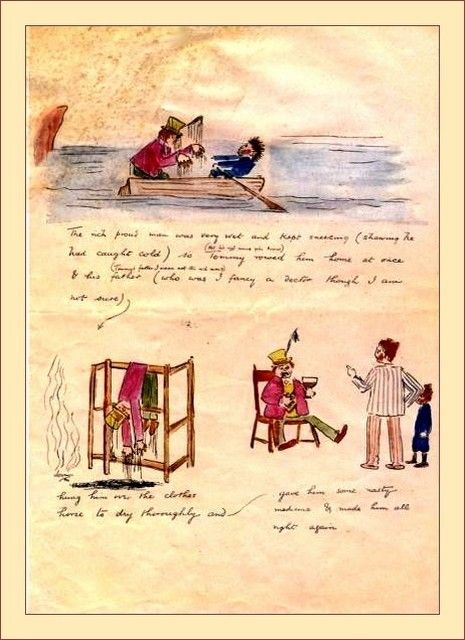 The rich proud man was very wet and kept sneezing (shewing he
had caught cold) so Tommy rowed him home at once
& his father (who was I fancy a doctor though I am
not sure)
hung him over the clothes
horse to dry thoroughly and
gave him some nasty
medicine & made him all
right again